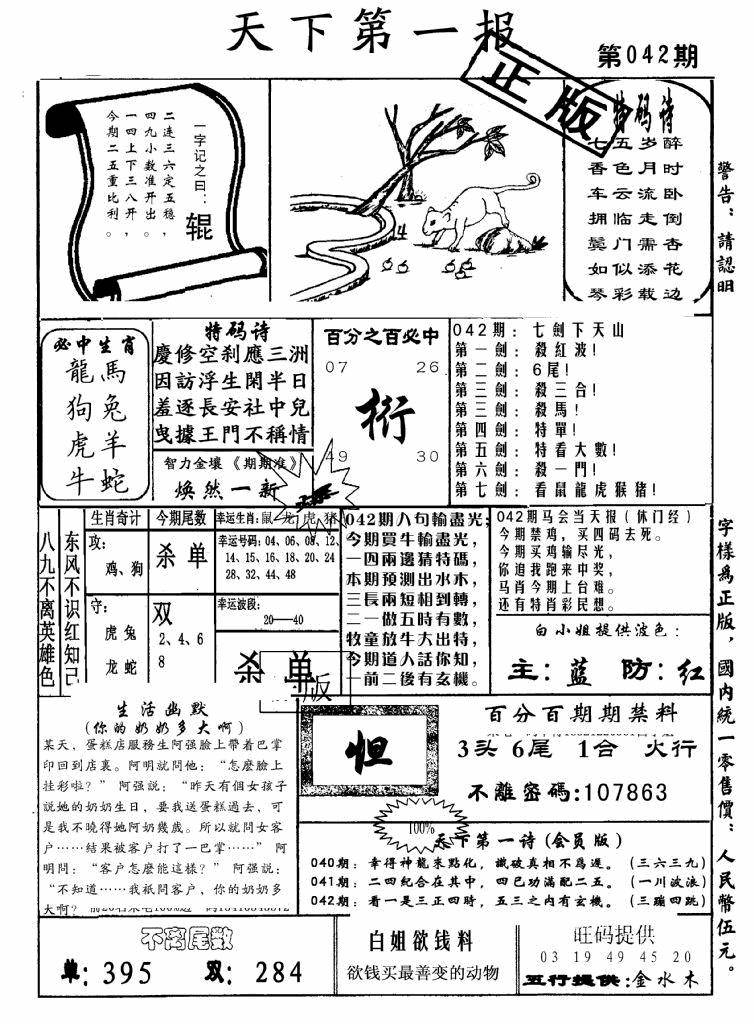 天下第一报
第042期
正版
一字记之曰：
辊
二连三六定五稳，
四九小数准开出。
一四上下三八开，
今期二五重比利。
特码诗
七五岁醉
香色月时
车云流卧
拥临走倒
羹门需杏
如似添花
琴彩载边
警告：請認明
字樣爲正版，國内統一零售價：人民幣伍元。
必中生肖
龍馬
狗兔
虎羊
牛蛇
特码诗
慶修空刹應三洲
因訪浮生閑半日
羞逐長安社中兒
曳據王門不稱情
智力金壤《期期准》
焕然一新
百分之百必中
07 26
桁
49 30
042期：七劍下天山
第一劍：殺紅波！
第二劍：6尾！
第三劍：殺三合！
第三劍：殺馬！
第四劍：特單！
第五劍：特看大數！
第六劍：殺一門！
第七劍：看鼠龍虎猴豬！
八九不离英雄色
东风不识红知己
生肖奇计
攻：
鸡、狗
守：
虎兔
龙蛇
今期尾数
杀单
双
2、4、6
8
幸运生肖：鼠龙虎猪
幸运号码：04、06、08、12、
14、15、16、18、20、24
28、32、44、48
幸运波段：
20——40
杀单
版
042期八句輸盡光；
今期買牛輸盡光，
一四兩邊猜特碼，
本期預測出水木，
三長兩短相到轉，
二一做五時有數，
牧童放牛大出特，
今期道人話你知，
一前二後有玄機。
042期马会当天报（休门经）
今期禁鸡，买四码去死。
今期买鸡输尽光，
你追我跑来中奖，
马肖今期上台难。
还有特肖彩民想。
白小姐提供波色：
主：蓝 防：红
生活幽默
（你的奶奶多大啊）
某天，蛋糕店服務生阿强臉上帶着巴掌
印回到店裏。阿明就問他：“怎麽臉上
挂彩啦？”阿强説：“昨天有個女孩子
説她的奶奶生日，要我送蛋糕過去，可
是我不曉得她阿奶幾歲。所以就問女客
户……结果被客户打了一巴掌……”阿
明問：“客户怎麽能這樣？”阿强説：
“不知道……我祇問客户，你的奶奶多
大啊？
怛
百分百期期禁料
3头 6尾 1合 火行
不離密碼：107863
100%
天下第一诗（会员版）
040期：幸得神龍來點化，識破真相不爲遲。（三六三九）
041期：二四紀合在其中，四巳功滿配二五。（一川波浪）
042期：看一是三正四時，五三之内有玄機。（三蹦四跳）
不离尾数
单：395 双：284
白姐欲钱料
欲钱买最善变的动物
旺码提供
03 19 49 45 20
五行提供：金水木